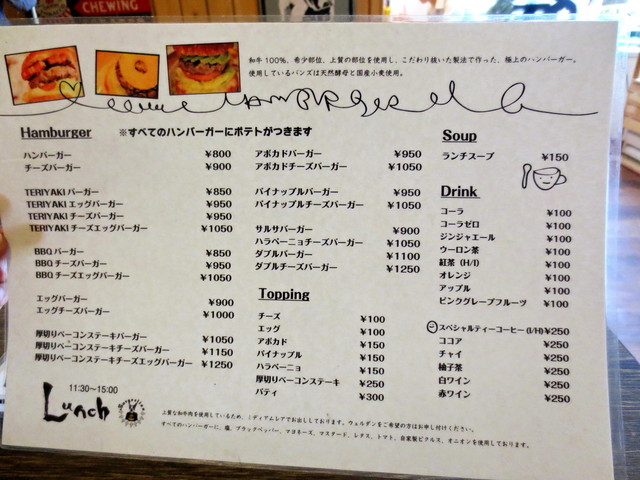 CHEWING
和牛100%、希少部位、上質の部位を使用し、こだわり抜いた製法で作った、極上のハンバーガー。
使用しているバンズは天然酵母と国産小麦使用。
HAMBURGER
Hamburger ※すべてのハンバーガーにポテトがつきます
ハンバーガー ¥800
チーズバーガー ¥900
TERIYAKI バーガー ¥850
TERIYAKI エッグバーガー ¥950
TERIYAKI チーズバーガー ¥950
TERIYAKI チーズエッグバーガー ¥1050
BBQ バーガー ¥850
BBQ チーズバーガー ¥950
BBQ チーズエッグバーガー ¥1050
エッグバーガー ¥900
エッグチーズバーガー ¥1000
厚切りベーコンステーキバーガー ¥1050
厚切りベーコンステーキチーズバーガー ¥1150
厚切りベーコンステーキチーズエッグバーガー ¥1250
アボカドバーガー ¥950
アボカドチーズバーガー ¥1050
パイナップルバーガー ¥950
パイナップルチーズバーガー ¥1050
サルサバーガー ¥900
ハラペーニョチーズバーガー ¥1050
ダブルバーガー ¥1100
ダブルチーズバーガー ¥1250
Topping
チーズ ¥100
エッグ ¥100
アボカド ¥150
パイナップル ¥150
ハラペーニョ ¥150
厚切りベーコンステーキ ¥250
パティ ¥300
Soup
ランチスープ ¥150
Drink
コーラ ¥100
コーラゼロ ¥100
ジンジャエール ¥100
ウーロン茶 ¥100
紅茶 (H/I) ¥100
オレンジ ¥100
アップル ¥100
ピンクグレープフルーツ ¥100
スペシャルティーコーヒー (I/H) ¥250
ココア ¥250
チャイ ¥250
柚子茶 ¥250
白ワイン ¥250
赤ワイン ¥250
11:30～15:00
Lunch
上質な和牛肉を使用しているため、ミディアムレアでお出ししております。ウェルダンをご希望の方はお申し付けください。
すべてのハンバーガーに、塩、ブラックペッパー、マヨネーズ、マスタード、レタス、トマト、自家製ピクルス、オニオンを使用しております。